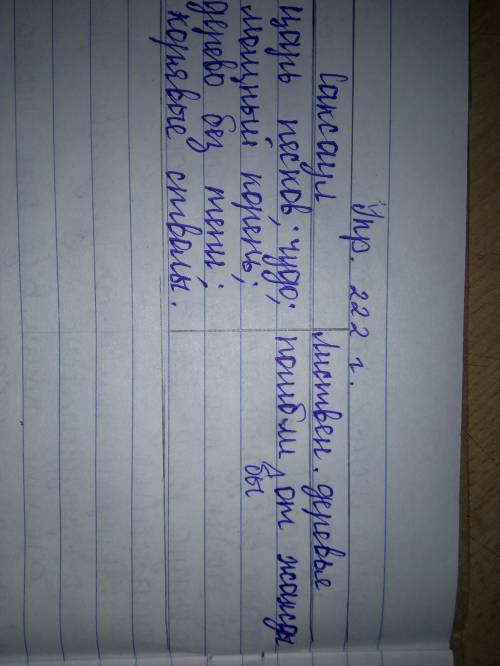 Упр. 222 г.
Саксаул
Листвен. деревья
царь песков, чудо;
мощный корень;
дерево без тени;
корявые стволы.
погибли бы от жажды